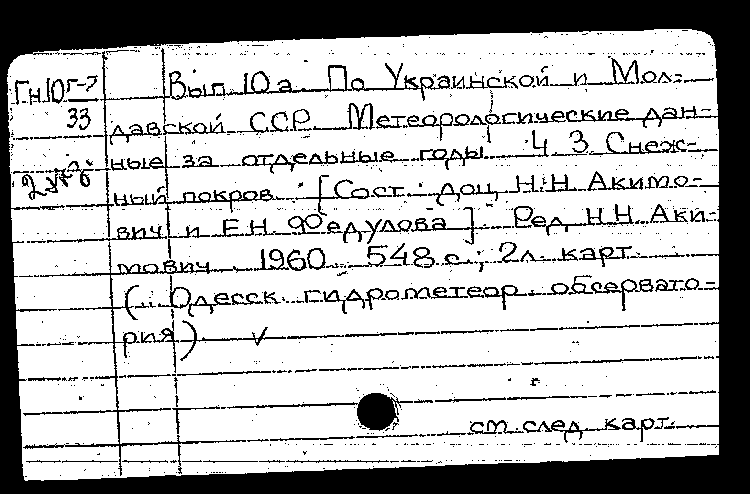 Гн10г-7 Вып. 10а. По Украинской и Мол-
33 давской ССР. Метеорологические дан-
ные за отдельные годы. Ч. 3. Снеж-
ный покров. [Сост.: доц. Н.Н. Акимо-
вич и Е.Н. Федулова]. Ред. Н.Н. Аки-
мович. 1960. 548 с.; 2л. карт.
(.. Одесск. гидрометеор. обсервато-
рия). ✓
см. след. карт.